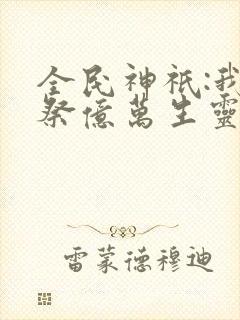 全民神祇:我
祭億萬生靈
雷蒙德穆迪